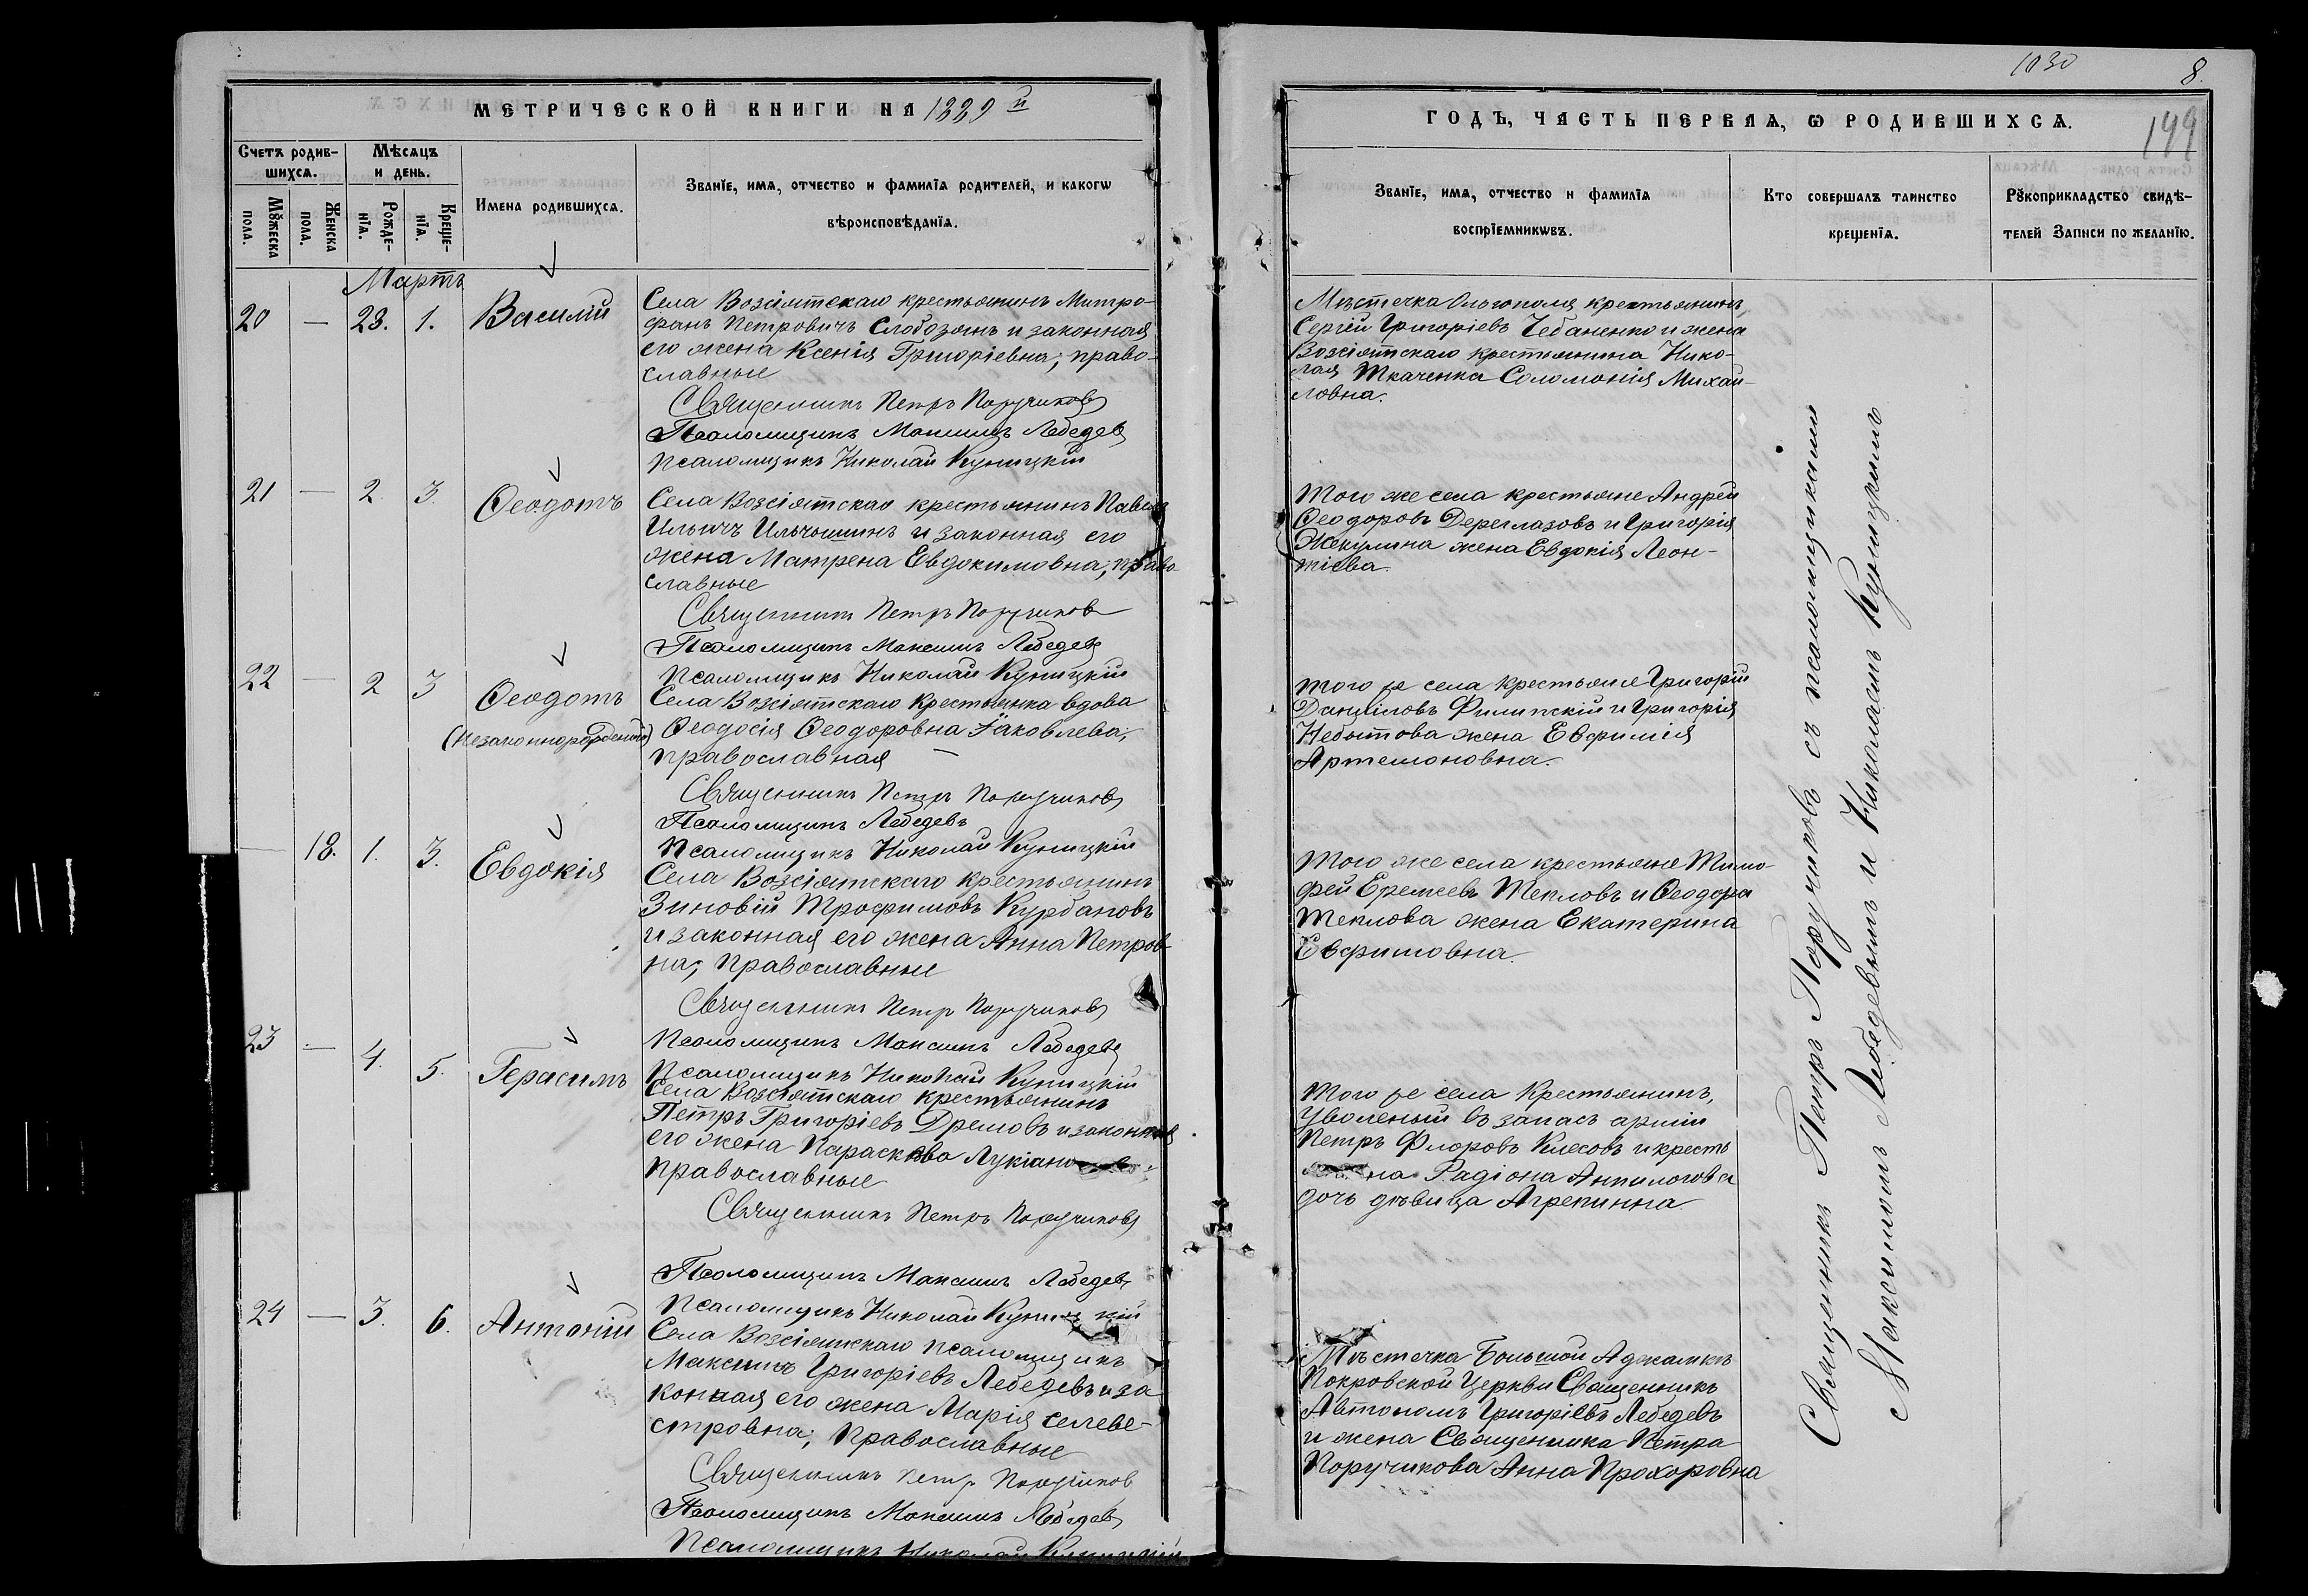 МЕТРИЧЕСКОЙ КНИГИ НА 1889 й
Счетъ родив-
шихся.
Мѣсяцъ
и день.
Мужеска
пола.
Женска
пола.
Рожде-
нія.
Креще-
нія.
Имена родившихся.
Званіе, имя, отчество и фамилія родителей, и какогѡ
вѣроисповѣданія.
Мартъ
20 — 28. 1. Василій
Села Возсіятскаго крестьянинъ Митро-
фанъ Петровичъ Слободзянъ и законная
его жена Ксенія Григоріевна; право-
славные
Священникъ Петръ Поручиковъ
Псаломщикъ Максимъ Лебедевъ
Псаломщикъ Николай Куницкій
21 — 2. 3. Ѳеодотъ
Села Возсіятскаго крестьянинъ Павелъ
Ильичъ Ильчышинъ и законная его
жена Матрена Евдокимовна; право-
славные
Священникъ Петръ Поручиковъ
Псаломщикъ Максимъ Лебедевъ
Псаломщикъ Николай Куницкій
22 — 2 3 Ѳеодотъ
(Незаконнорожденный)
Села Возсіятскаго крестьянка вдова
Ѳеодосія Ѳеодоровна Яковлева;
православная —
Священникъ Петръ Поручиковъ
Псаломщикъ Лебедевъ
Псаломщикъ Николай Куницкій
— 18. 1. 3. Евдокія
Села Возсіятскаго крестьянинъ
Зиновій Трофимовъ Курбановъ
и законная его жена Анна Петров-
на; православные
Священникъ Петръ Поручиковъ
Псаломщикъ Максимъ Лебедевъ
Псаломщикъ Николай Куницкій
23 — 4. 5. Герасимъ
Села Возсіятскаго крестьянинъ
Петръ Григоріевъ Дремовъ и законная
его жена Параскева Лукіановна;
православные
Священникъ Петръ Поручиковъ
Псаломщикъ Максимъ Лебедевъ
Псаломщикъ Николай Куницкій
24 — 3. 6. Антоній
Села Возсіятскаго псаломщикъ
Максимъ Григоріевъ Лебедевъ и за
конная его жена Марія Селиве-
стровна; православные
Священникъ Петръ Поручиковъ
Псаломщикъ Максимъ Лебедевъ
Псаломщикъ Николай Куницкій
1030
8.
199
ГОДЪ, ЧАСТЬ ПЕРВАЯ, Ѡ РОДИВШИХСЯ.
Званіе, имя, отчество и фамилія
воспріемникѡвъ.
Кто совершалъ таинство
крещенія.
Рукоприкладство свидѣ-
телей записи по желанію.
Мѣстечка Ольгополя крестьянинъ
Сергій Григоріевъ Чебаненко и жена
Возсіятскаго крестьянина Нико-
лая Ткаченка Соломонія Михай-
ловна.
Того же села крестьяне Андрей
Ѳеодоровъ Дереглазовъ и Григорія
Жекулина жена Евдокія Леон-
тіева.
Того же села крестьяне Григорій
Даниіловъ Филипскій и Григорія
Небытова жена Евфимія
Артемоновна.
Того же села крестьяне Тимо-
фей Еремеевъ Тепловъ и Ѳеодора
Теплова жена Екатерина
Евфимовна.
Того же села крестьянинъ,
уволеный въ запасъ арміи
Петръ Флоровъ Клесовъ и кресть
на Радіона Анпилогова
дочь дѣвица Агрепинна
Мѣстечка Большой Аджамки
Покровской Церкви Священникъ
Автономъ Григоріевъ Лебедевъ
и жена Священника Петра
Поручикова Анна Прохоровна
Священникъ Петръ Поручиковъ съ псаломщиками
Максимомъ Лебедевымъ и Николаемъ Куницкимъ